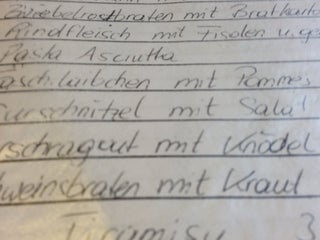 Zwiebelrostbraten mit Bratkarto
Rindfleisch mit Fisolen u.
Pasta Asciutta
aschlaibchen mit Pommes
urschnitzel mit Salat
rschragout mit Knödel
weinsbraten mit Kraut
Tiramisu 3